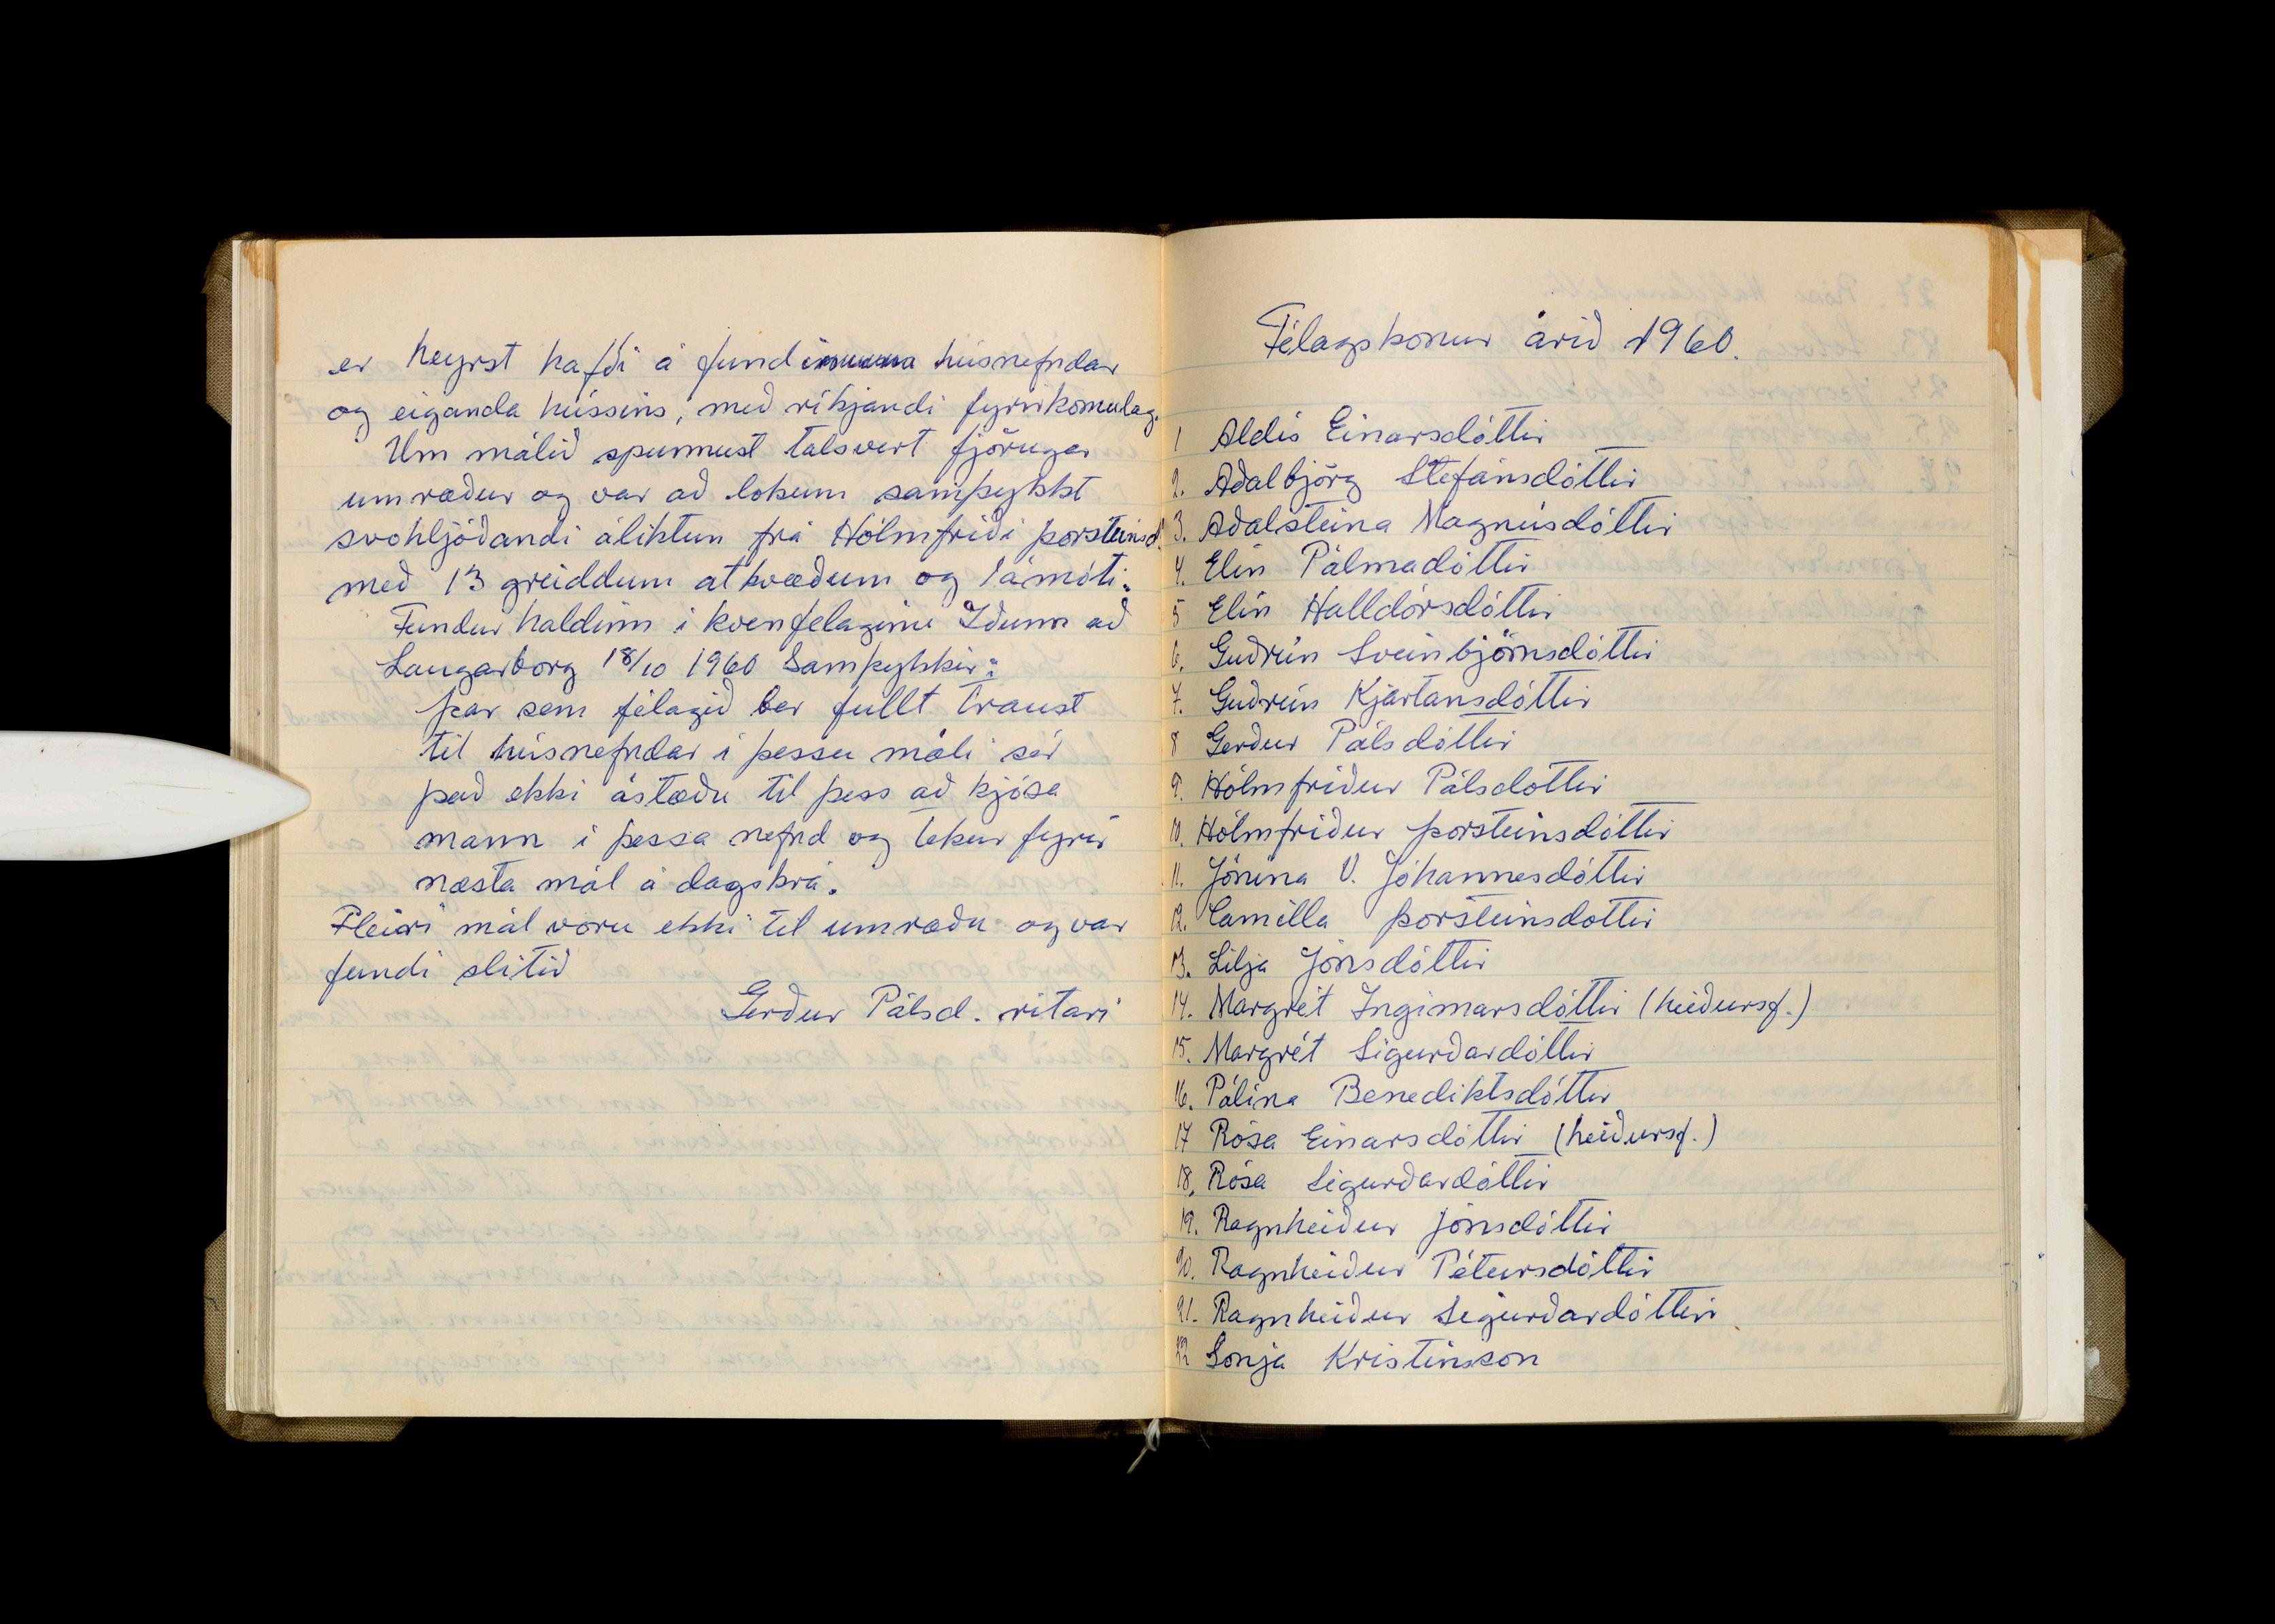 er heyrst hafði á fundi húsnefndar
og eiganda hússins, með ríkjandi fyrirkomulag.
Um málið spunnust talsvert fjörugar
umræður og var að lokum samþykkt
svohljóðandi áliktun frá Hólmfríði Þorsteinsd.
með 13 greiddum atkvæðum og 1 ámóti:
Fundur haldinn í kvenfelaginu Iðunn að
Laugarborg 18/10 1960 Samþykkir:
Þar sem félagið ber fullt traust
til húsnefndar í þessu máli sér
það ekki ástæðu til þess að kjósa
mann í þessa nefnd og tekur fyrir
næsta mál á dagskrá.
Fleiri mál voru ekki til umræðu og var
fundi slitið
Gerður Pálsd. ritari
Félagskonur árið 1960.
1 Aldís Einarsdóttir
2. Aðalbjörg Stefánsdóttir
3. Aðalsteina Magnúsdóttir
4. Elín Pálmadóttir
5 Elín Halldórsdóttir
6. Guðrún Sveinbjörnsdóttir
7. Guðrún Kjartansdóttir
8 Gerður Pálsdóttir
9. Hólmfríður Pálsdóttir
10. Hólmfríður Þorsteinsdóttir
11. Jónína V. Jóhannesdóttir
12. Camilla Þorsteinsdottir
13. Lilja Jónsdóttir
14. Margrét Ingimarsdóttir (heiðursf.)
15. Margrét Sigurðardóttir
16. Pálína Benediktsdóttir
17 Rósa Einarsdóttir (heiðursf.)
18. Rósa Sigurðardóttir
19. Ragnheiður Jónsdóttir
20. Ragnheiður Pétursdóttir
21. Ragnheiður Sigurðardóttir
22 Sonja Kristinsson